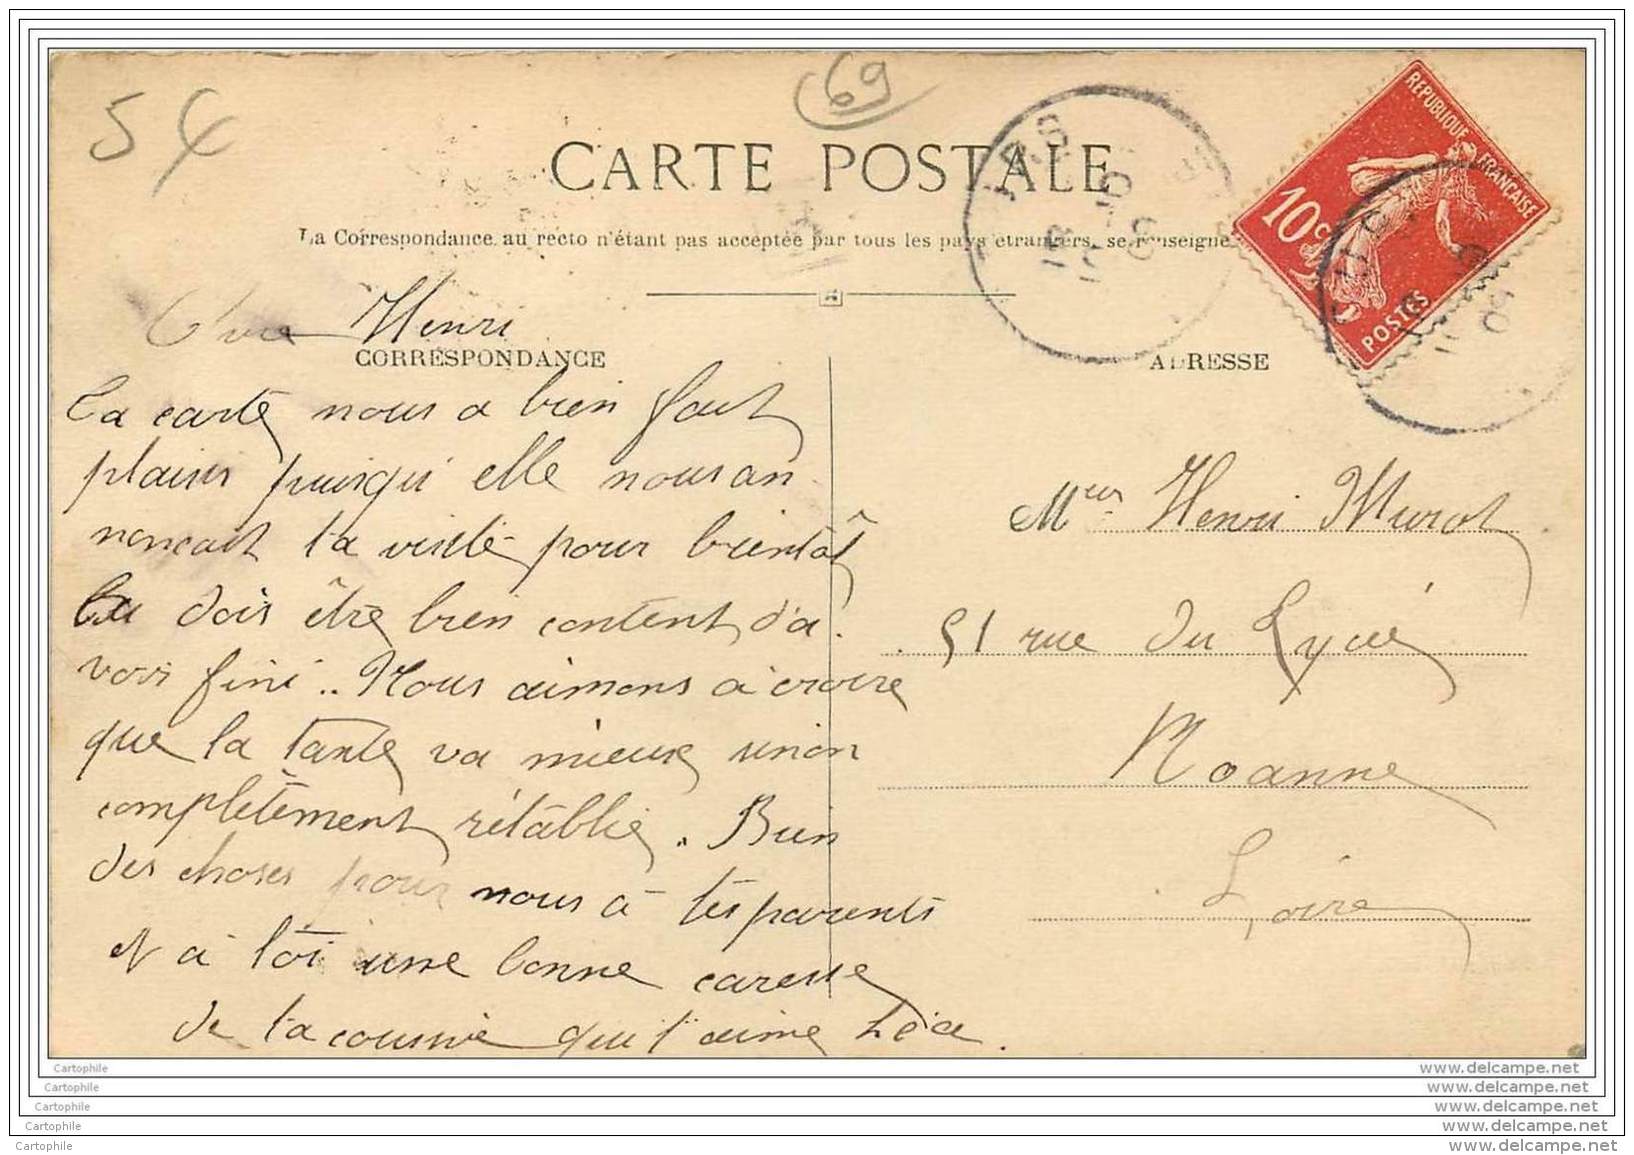 54
69
CARTE POSTALE
La Correspondance au recto n'étant pas acceptée par tous les pays étrangers, se renseigne
RÉPUBLIQUE FRANÇAISE
10c
POSTES
Henri
CORRESPONDANCE
Ta carte nous a bien fait
plaisir puisqu'elle nous an
noncait ta visite pour bientôt
Tu dois être bien content d'a
voir fini .. Nous aimons à croire
que la tante va mieux sinon
complètement rétablie. Bien
des choses pour nous à tes parents
et à toi une bonne caresse
de ta cousine qui t'aime Léa.
ADRESSE
Meur Henri Murat
51 rue du Lycée
Roanne
Loire
Cartophile
Cartophile
Cartophile
Cartophile
Cartophile
www.delcampe.net
www.delcampe.net
www.delcampe.net
www.delcampe.net
www.delcampe.net